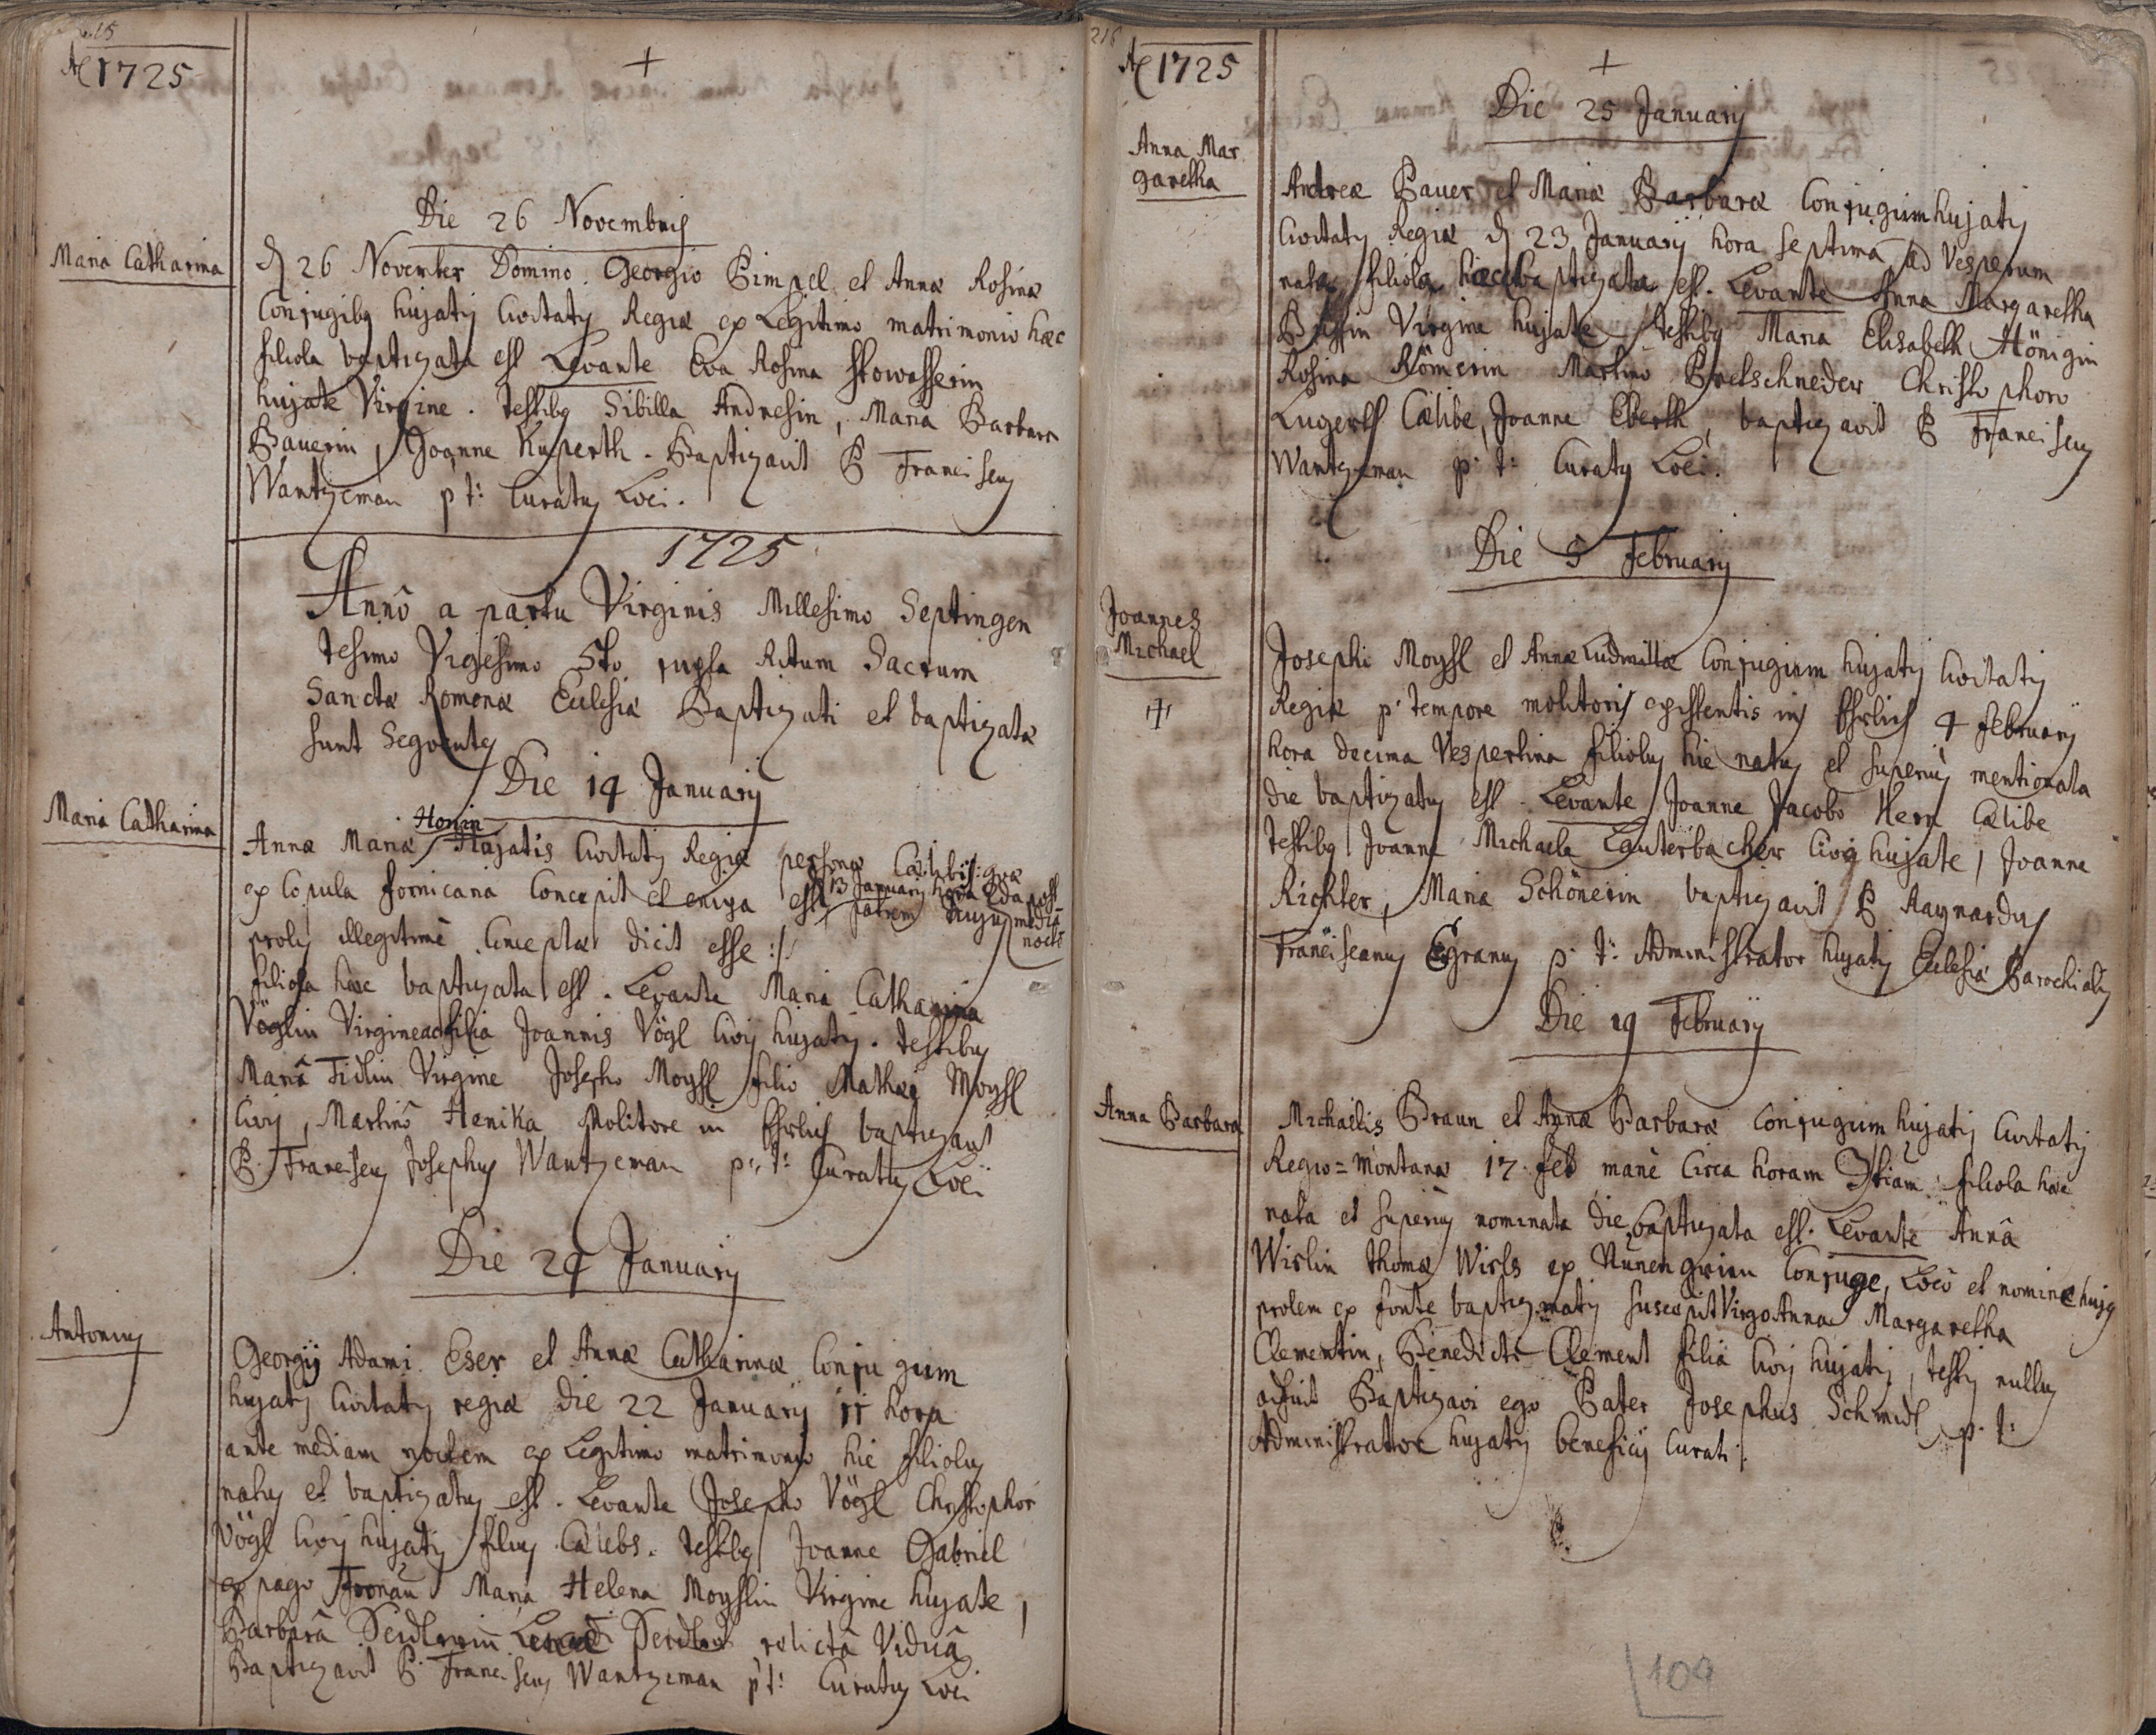 215
A 1725
+
Die 26 Novembris
Maria Catharina
26 November Domino Georgio Pimpel et Annæ Rosinæ
Conjugibq hujatis Civitatis Regiæ ex Legitimo matrimonio hæc
filiola baptizata est Levante Eva Rosina Stowasserin
hujate Virgine. Testibq Sibilla Andresin, Maria Barbara
Bauerin, Joanne Kuperth. Baptizavit P Franciscus
Wantzeman p t: Curatus Loci.
1725
Annô a partu Virginis Millesimo Septingen
tesimo Vigesimo 5to juxta Ritum Sacrum
Sanctæ Romanæ Eclesiæ Baptizati et baptizatæ
sunt Seqventes
Die 14 Januarij
Maria Catharina
Annæ Mariæ Honin Hujatis Civitatis Regiæ personæ Cælibis: quæ
ex Copula fornicaria Concepit et enixa est 13 January hora 2da post
mediã noctẽ
patrem hujus
prolis illegitimè Conceptæ dicit esse :/
filiola hæc baptizata est. Levante Maria Catharina
Vöglin Virgine ac filia Joannis Vögl Civis hujatis. Testibus
Mariâ Tidlin Virgine Josepho Moyssl filio Mathæi Moyssl
Civis, Martinô Henika Molitore in baptizavit
P. Franciscus Josephus Wantzeman p: t: Curatus Loci
Die 24 January
Antonius
Georgij Adami Eser et Annæ Catharinæ Conju gum
hujatis Civitatis regiæ die 22 Januarij 11 hora
ante mediam noctem ex Legitimo matrimonio hic filiolus
natus et baptizatus est. Levante Josepho Vögl Christophor
Vögl Civis hujatis filius Cælebs. Testibq Joanne Gabriel
ex pago Fronau Maria Helena Moysslin Virgine hujate,
Barbarâ Seidlerin relictâ Viduâ
Baptizavit P. Franciscus Wantzeman p t: Curatus Loci
216
A 1725
+
Die 25 Januarij
Anna Mar
garetha
Andreæ Bauer et Mariæ Barbaræ Conjugum hujatis
Civitatis Regiæ 23 Januarij hora septima ad Vesperum
nata filiola hæc baptizata est. Levante Anna Margaretha
Virgine hujate testibq Maria Elisabeth Hönigin
Rosina Römerin Martino Bretschneider Christo phoro
Lugerth Cælibe, Joanne Eberth, baptizavit P Franciscus
Wantzeman p: t: Curatus Loci.
Die 5 February
Joannes
Michael
Josephi Moyssl et Annæ Ludmillæ Conjugum hujatis Civitatis
Regiæ p: tempore molitoris existentis in 4 February
hora decima Vespertina filiolus hic natus et superius mentionata
die baptizatus est. Levante Joanne Jacobo Hern Cælibe
testibq Joanne Michaele Lauterbacher Cive hujate, Joanne
Richter, Maria Schönerin baptizavit P Raynardus
Franciscanus Egranus p. t: Administrator hujatis Eclesiæ Parochialis
Die 19 February
Anna Barbara
Michaëlis Braun et Annæ Barbaræ Conjugum hujatis Civitatis
Regio=montanæ 17 Feb manè Circa horam 3tiam filiola hæc
nata et superius nominata die baptizata est. Levante Annâ
Wirlin Thomæ Wirls ex Conjuge, Locô et nomine hujq
prolem ex fonte baptizmatis suscepit Virgo Anna Margaretha
Clementin, Benedicti Clement filia Civis hujatis, testis nullus
adfuit Baptizavi ego Pater Josephus Schmidt p. t:
Administrattor hujatis beneficij Curati.
109